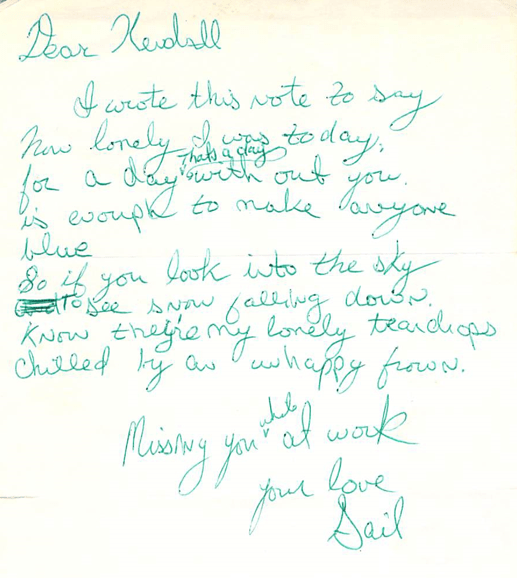 Dear Kendall
I wrote this note to say
how lonely I was today,
for a day that's a day with out you.
is enough to make anyone
blue
So if you look into the sky
to see snow falling down.
Know they're my lonely teardrops
chilled by an unhappy frown.
Missing you while at work
your love
Gail